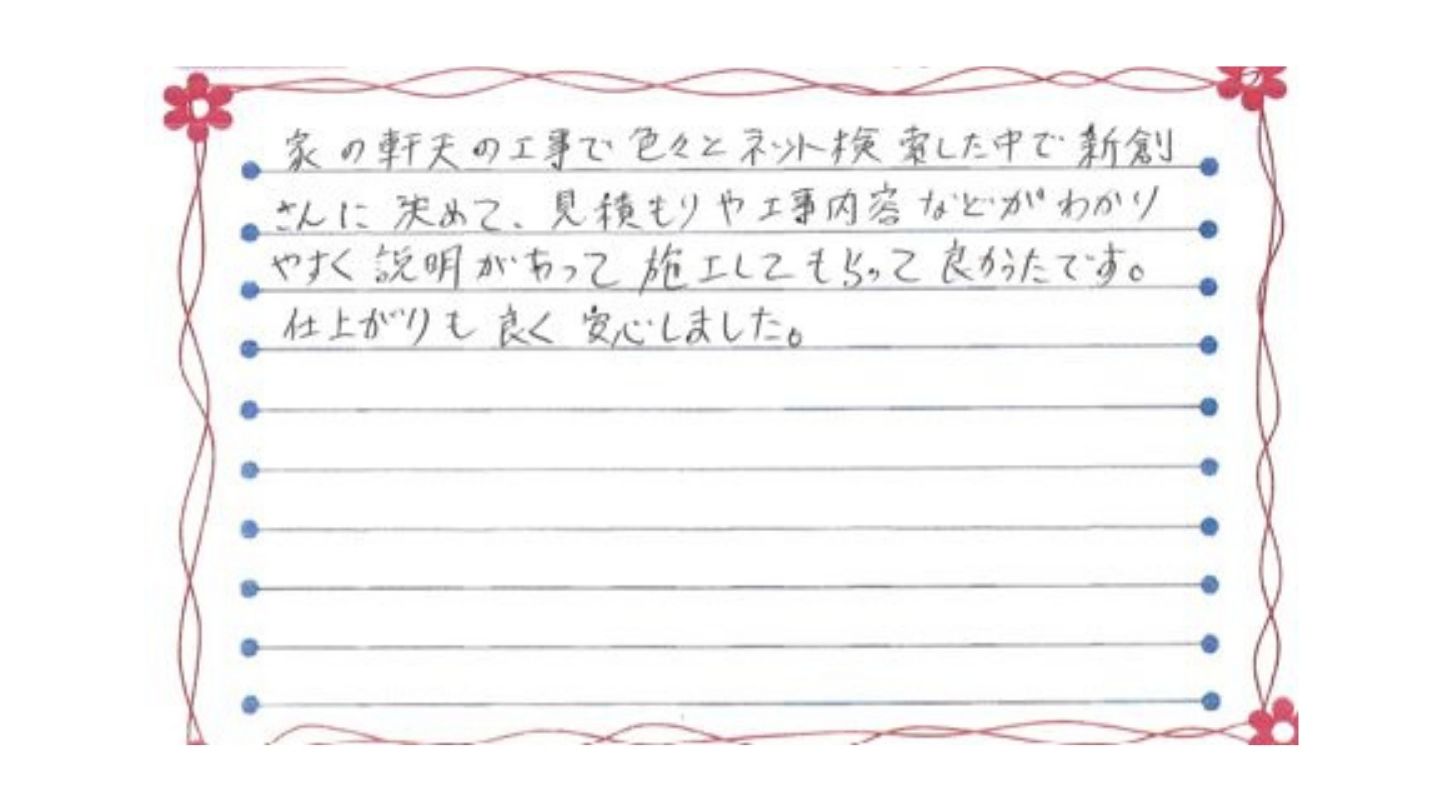 家の軒天の工事で色々とネット検索した中で新創
さんに決めて、見積もりや工事内容などがわかり
やすく説明があって施工してもらって良かったです。
仕上がりも良く安心しました。